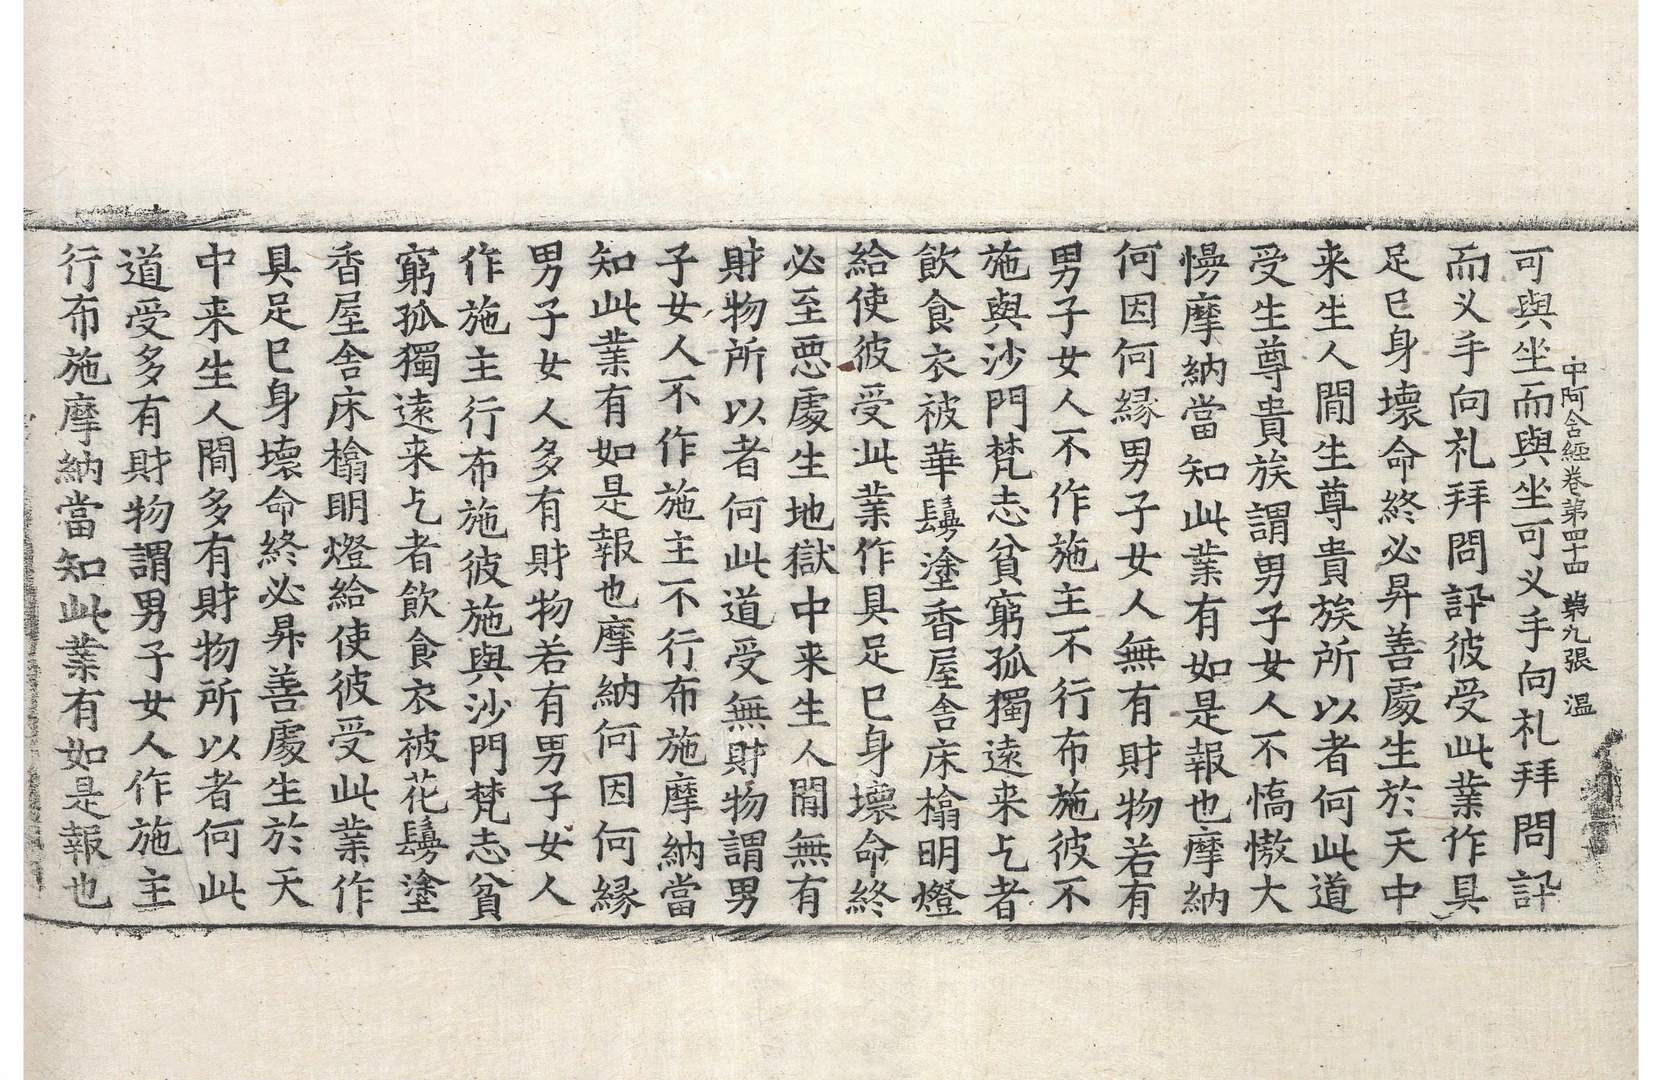 中阿含經卷第四十四 第九張 温
可與坐而與坐可义手向礼拜問訊
而义手向礼拜問訊彼受此業作具
足已身壞命終必昇善處生於天中
来生人間生尊貴族所以者何此道
受生尊貴族謂男子女人不憍慠大
慢摩納當知此業有如是報也摩納
何因何縁男子女人無有財物若有
男子女人不作施主不行布施彼不
施與沙門梵志貧窮孤獨遠来乞者
飲食衣被華鬘塗香屋舍床榻明燈
給使彼受此業作具足已身壞命終
必至惡處生地獄中来生人間無有
財物所以者何此道受無財物謂男
子女人不作施主不行布施摩納當
知此業有如是報也摩納何因何縁
男子女人多有財物若有男子女人
作施主行布施彼施與沙門梵志貧
窮孤獨遠来乞者飲食衣被花鬘塗
香屋舍床榻明燈給使彼受此業作
具足已身壞命終必昇善處生於天
中来生人間多有財物所以者何此
道受多有財物謂男子女人作施主
行布施摩納當知此業有如是報也